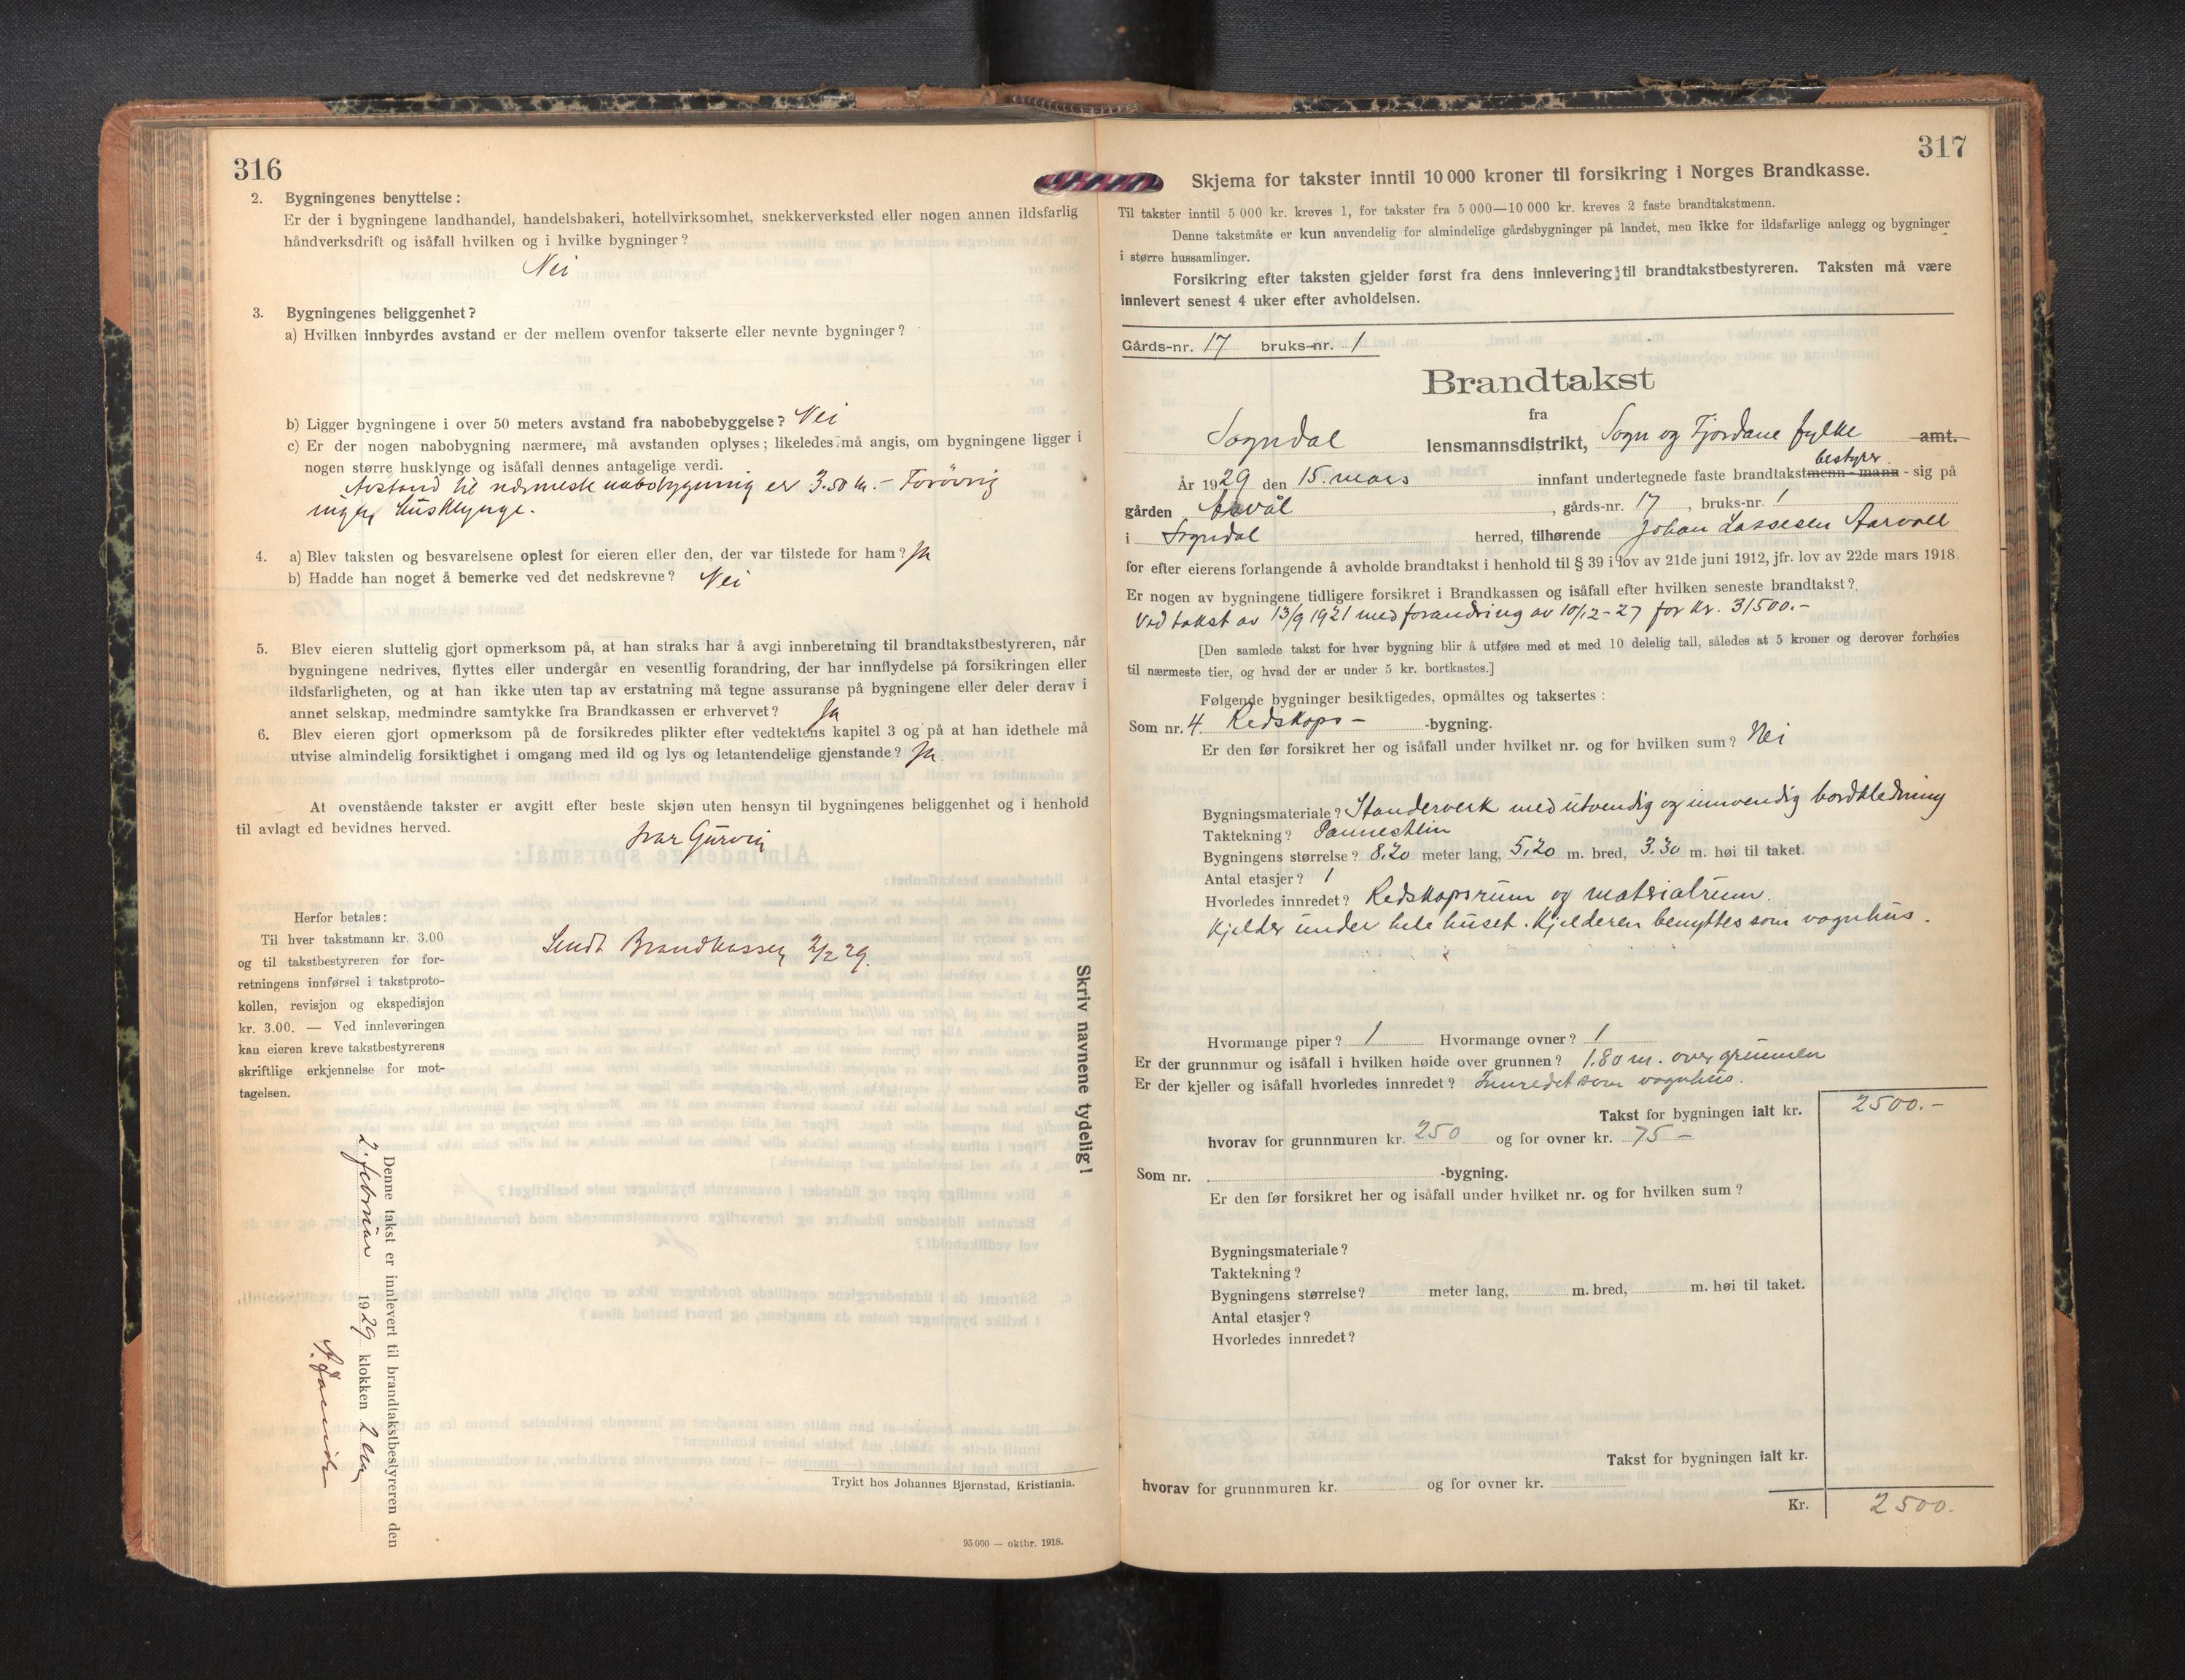 316
2. Bygningenes benyttelse :
Er der i bygningene landhandel, handelsbakeri, hotellvirksomhet, snekkerverksted eller nogen annen ildsfarlig
håndverksdrift og isåfall hvilken og i hvilke bygninger ?
Nei
3. Bygningenes beliggenhet ?
a) Hvilken innbyrdes avstand er der mellem ovenfor takserte eller nevnte bygninger ?
b) Ligger bygningene i over 50 meters avstand fra nabobebyggelse ? Nei
c) Er der nogen nabobygning nærmere, må avstanden oplyses ; likeledes må angis, om bygningene ligger i
nogen større husklynge og isåfall dennes antagelige verdi.
Avstand til nærmeste nabobygning er 3.50 m. - Forövrig
ingen husklynge.
4. a) Blev taksten og besvarelsene oplest for eieren eller den, der var tilstede for ham ? Ja
b) Hadde han noget å bemerke ved det nedskrevne ? Nei
5. Blev eieren sluttelig gjort opmerksom på, at han straks har å avgi innberetning til brandtakstbestyreren, når
bygningene nedrives, flyttes eller undergår en vesentlig forandring, der har innflydelse på forsikringen eller
ildsfarligheten, og at han ikke uten tap av erstatning må tegne assuranse på bygningene eller deler derav i
annet selskap, medmindre samtykke fra Brandkassen er erhvervet ? Ja
6. Blev eieren gjort opmerksom på de forsikredes plikter efter vedtektens kapitel 3 og på at han idethele må
utvise almindelig forsiktighet i omgang med ild og lys og letantendelige gjenstande ? Ja.
At ovenstående takster er avgitt efter beste skjøn uten hensyn til bygningenes beliggenhet og i henhold
til avlagt ed bevidnes herved.
Ivar Gurvin
Herfor betales :
Til hver takstmann kr. 3.00
og til takstbestyreren for for-
retningens innførsel i takstproto-
kollen, revisjon og ekspedisjon
kr. 3.00. — Ved innleveringen
kan eieren kreve takstbestyrerens
skriftlige erkjennelse for mot-
tagelsen.
Sendt Brandkassen 2/2 29.
Skriv navnene tydelig !
Denne takst er innlevert til brandtakstbestyreren den
2. februar 1929 klokken 2
Trykt hos Johannes Bjørnstad, Kristiania.
95 000 — oktbr. 1918.
317
Skjema for takster inntil 10 000 kroner til forsikring i Norges Brandkasse.
Til takster inntil 5 000 kr. kreves 1, for takster fra 5 000—10 000 kr. kreves 2 faste brandtakstmenn.
Denne takstmåte er kun anvendelig for almindelige gårdsbygninger på landet, men ikke for ildsfarlige anlegg og bygninger
i større hussamlinger.
Forsikring efter taksten gjelder først fra dens innlevering til brandtakstbestyreren. Taksten må være
innlevert senest 4 uker efter avholdelsen.
Gårds-nr. 17 bruks-nr. 1
Brandtakst
fra
Sogndal lensmannsdistrikt, Sogn og Fjordane fylke amt.
bestyrer
År 1929 den 15. mars innfant undertegnede faste brandtakstmenn - mann - sig på
gården Årvål, gårds-nr. 17, bruks-nr. 1
i Sogndal herred, tilhørende Johan Lassesen Aarvoll
for efter eierens forlangende å avholde brandtakst i henhold til § 39 i lov av 21de juni 1912, jfr. lov av 22de mars 1918.
Er nogen av bygningene tidligere forsikret i Brandkassen og isåfall efter hvilken seneste brandtakst ?
Ved takst av 13/9 1921 med forandring av 10/12-27 for kr. 31500.-
[Den samlede takst for hver bygning blir å utføre med et med 10 delelig tall, således at 5 kroner og derover forhøies
til nærmeste tier, og hvad der er under 5 kr. bortkastes.]
Følgende bygninger besiktigedes, opmåltes og taksertes :
Som nr. 4. Redskaps- -bygning.
Er den før forsikret her og isåfall under hvilket nr. og for hvilken sum ? Nei
Bygningsmateriale ? Standerverk med utvendig og innvendig bordkledning
Taktekning ? Pannestein
Bygningens størrelse ? 8.20 meter lang, 5.20 m. bred, 3.30 m. høi til taket.
Antal etasjer ? 1
Hvorledes innredet ? Redskapsrum og matrialrum.
Kjelder under hele huset. Kjelderen benyttes som vognhus.
Hvormange piper ? 1 Hvormange ovner ? 1
Er der grunnmur og isåfall i hvilken høide over grunnen ? 1.80 m. over grunnen
Er der kjeller og isåfall hvorledes innredet ? Innredet som vognhus.
Takst for bygningen ialt kr. 2500.-
hvorav for grunnmuren kr. 250 og for ovner kr. 75 -
Som nr. -bygning.
Er den før forsikret her og isåfall under hvilket nr. og for hvilken sum ?
Bygningsmateriale ?
Taktekning ?
Bygningens størrelse ? meter lang, m. bred, m. høi til taket.
Antal etasjer ?
Hvorledes innredet ?
Takst for bygningen ialt kr.
hvorav for grunnmuren kr. og for ovner kr.
Kr. 2500.